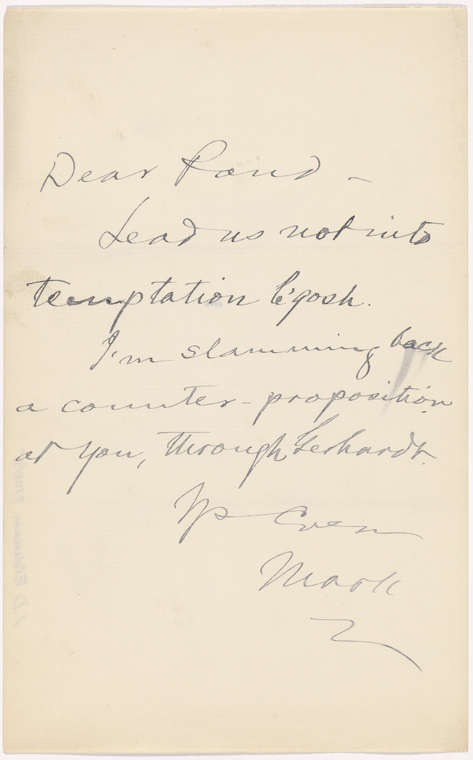 Dear Pond –
Lead us not into
temptation b'gosh.
I'm slamming back
a counter-proposition
at you, through Gerhardt.
Yrs Ever
Mark